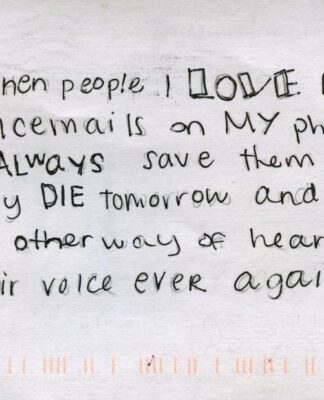 hen people I LOVE
icemails on MY ph
ALWAYS save them
y DIE tomorrow and
other way of hear
ir voice ever agai